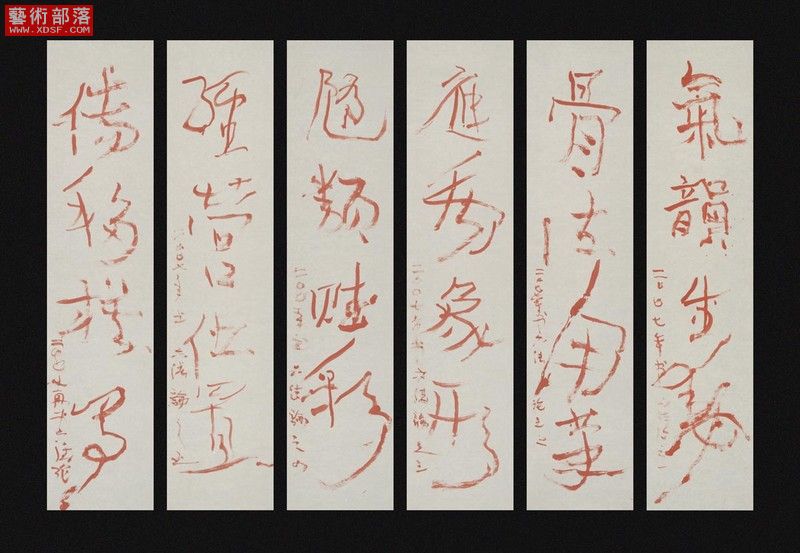 藝術部落
WWW.XDSF.COM
氣韻生動
二〇〇七年書六法論之一
骨法用筆
二〇〇七年書六法論之二
應物象形
二〇〇七年書六法論之三
隨類賦彩
二〇〇七年書六法論之四
經營位置
二〇〇七年書六法論之五
傳移模寫